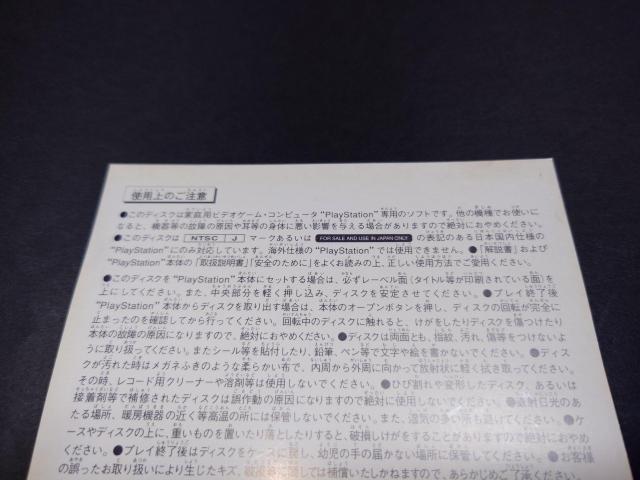 使用上のご注意
●このディスクは家庭用ビデオゲーム・コンピュータ“PlayStation”専用のソフトです。他の機種でお使いに
なると、機器等の故障の原因や耳等の身体に悪い影響を与える場合がありますので絶対におやめください。
●このディスクは NTSC J マークあるいは FOR SALE AND USE IN JAPAN ONLY の表記のある日本国内仕様の
“PlayStation”にのみ対応しています。海外仕様の“PlayStation”では使用できません。●「解説書」および
“PlayStation”本体の「取扱説明書」「安全のために」をよくお読みの上、正しい使用方法でご使用ください。
●このディスクを“PlayStation”本体にセットする場合は、必ずレーベル面(タイトル等が印刷されている面)を
上にしてください。また、中央部分を軽く押し込み、ディスクを安定させてください。●プレイ終了後
“PlayStation”本体からディスクを取り出す場合は、本体のオープンボタンを押し、ディスクの回転が完全に
止まったのを確認してから行ってください。回転中のディスクに触れると、けがをしたりディスクを傷つけたり
本体の故障の原因になりますので、絶対におやめください。●ディスクは両面とも、指紋、汚れ、傷等をつけないよ
うに取り扱ってください。またシール等を貼付したり、鉛筆、ペン等で文字や絵を書かないでください。●ディス
クが汚れた時はメガネふきのような柔らかい布で、内周から外周に向かって放射状に軽く拭き取ってください。
その時、レコード用クリーナーや溶剤等は使用しないでください。●ひび割れや変形したディスク、あるいは
接着剤等で補修されたディスクは誤作動の原因になりますので絶対に使用しないでください。●直射日光のあ
たる場所、暖房機器の近く等高温の所には保管しないでください。また、湿気の多い所も避けてください。●ケ
ースやディスクの上に、重いものを置いたり落としたりすると、破損しけがをすることがありますので絶対におやめ
ください。●プレイ終了後はディスクをケースに戻し、幼児の手の届かない場所に保管してください。●お客様
の誤ったお取り扱いにより生じたキズ、破損等に関しては補償いたしかねますので、あらかじめご了承ください。